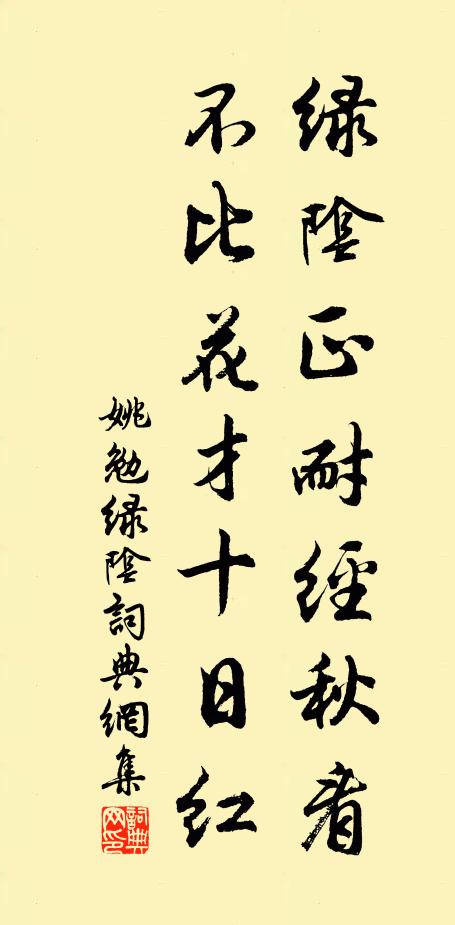 绿陰正耐經秋看
不比花才十日红
姚勉绿陰詞典網集
詞典网印